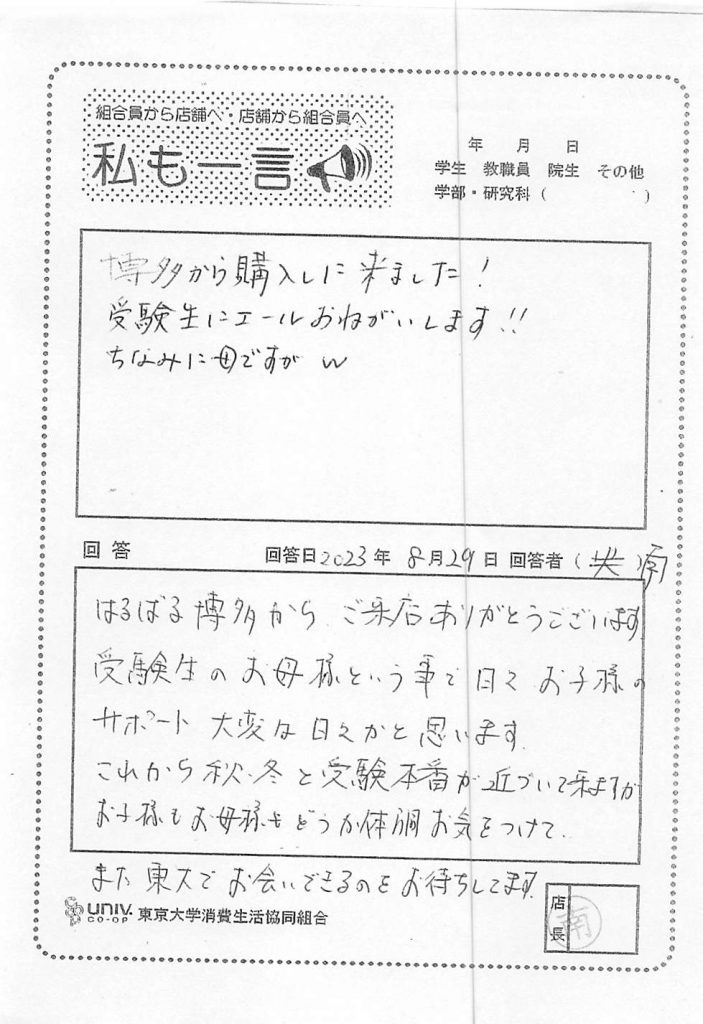 組合員から店舗へ・店舗から組合員へ
私も一言
年 月 日
学生 教職員 院生 その他
学部・研究科 ( )
博多から購入しに来ました!
受験生にエールおねがいします!!
ちなみに母ですが w
回答 回答日2023年 8月29日 回答者 ( ) 南
はるばる博多から ご来店ありがとうございます
受験生のお母様という事で日々 お子様の
サポート 大変な日々かと思います
これから秋・冬と受験本番が近づいて来ますが
お子様もお母様もどうか体調お気をつけて
また東大でお会いできるのをお待ちしてます
univ. CO-OP 東京大学消費生活協同組合
店長 南